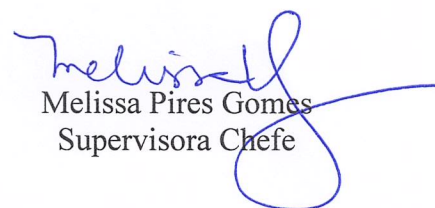 Melissa
Melissa Pires Gomes
Supervisora Chefe